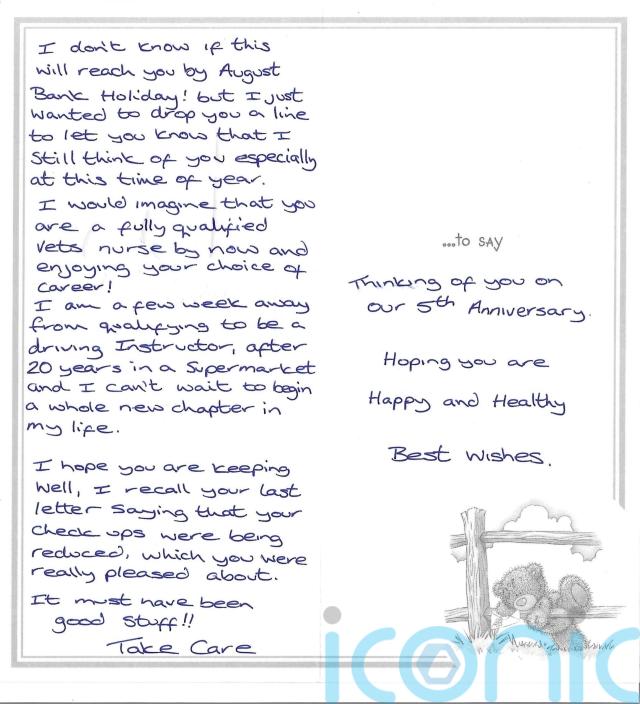 I don't know if this
will reach you by August
Bank Holiday! but I just
wanted to drop you a line
to let you know that I
still think of you especially
at this time of year.
I would imagine that you
are a fully qualified
vets nurse by now and
enjoying your choice of
career!
I am a few week away
from qualifying to be a
driving Instructor, after
20 years in a Supermarket
and I can't wait to begin
a whole new chapter in
my life.
I hope you are keeping
well, I recall your last
letter saying that your
check ups were being
reduced, which you were
really pleased about.
It must have been
good stuff!!
Take Care
...to SAY
Thinking of you on
our 5th Anniversary.
Hoping you are
Happy and Healthy
Best wishes.
iconic